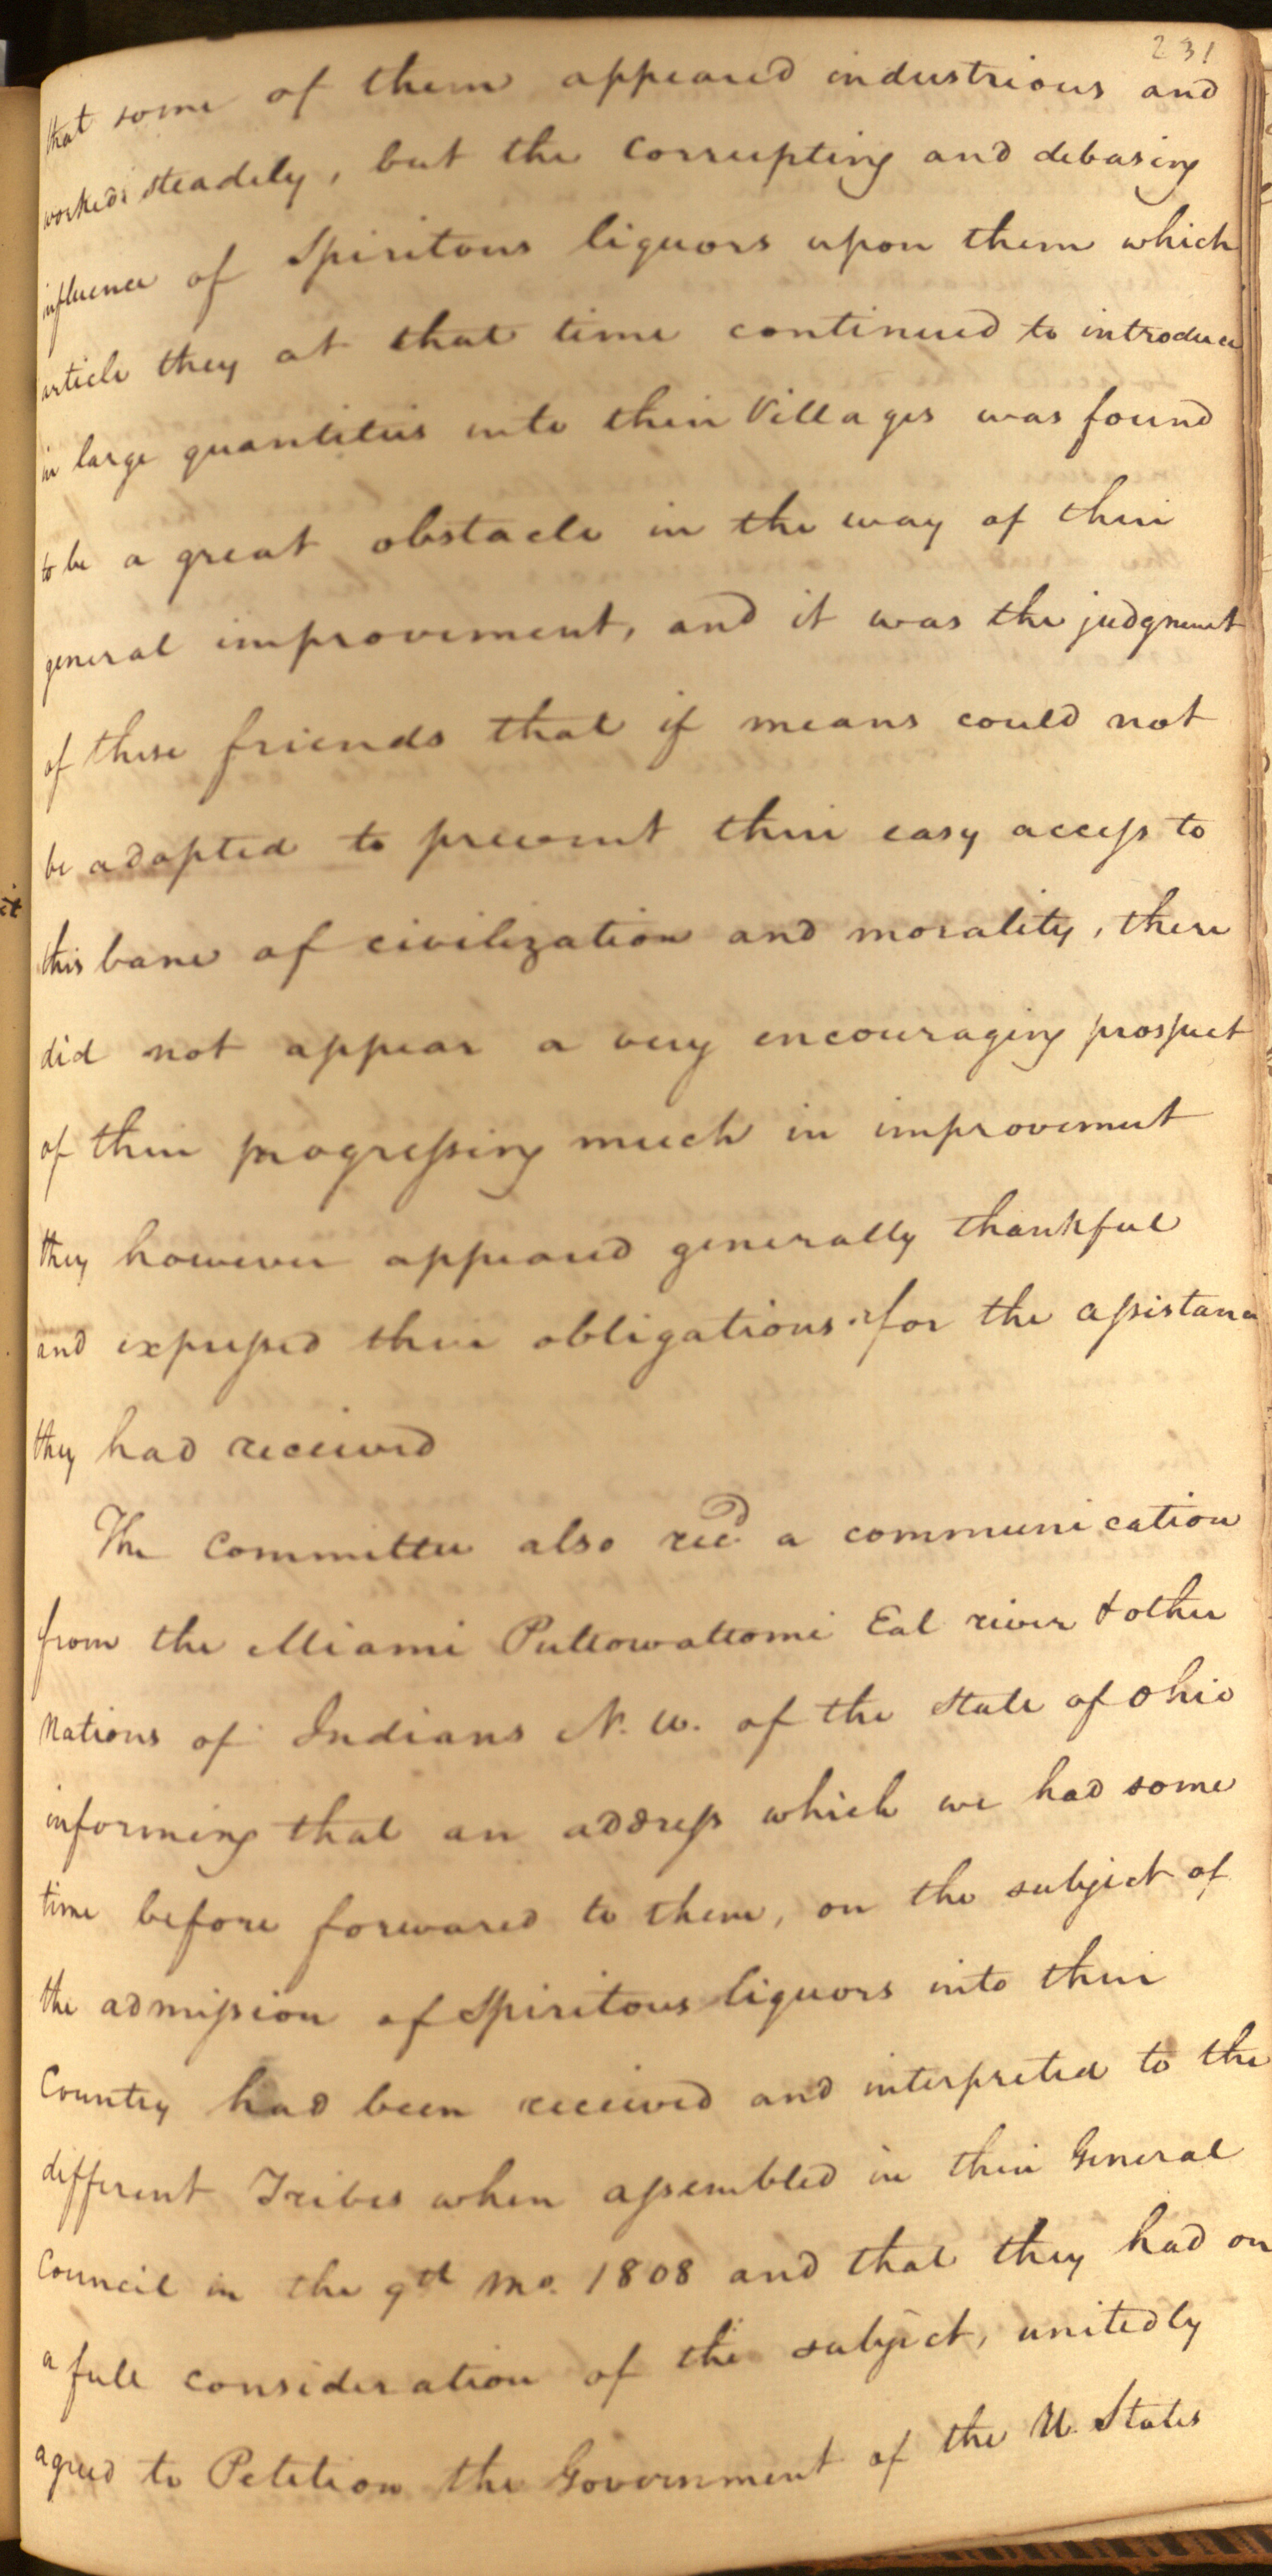 231
that some of them appeared industrious and
worked steadily, but the corrupting and debasing
influence of Spiritous liquors upon them which
article they at that time continued to introduce
in large quantities into their Villages was found
to be a great obstacle in the way of their
general improvement, and it was the judgment
of these friends that if means could not
be adapted to prevent their easy access to
this bane of civilization and morality, there
did not appear a very encouraging prospect
of their progressing much in improvement
they however appeared generally thankful
and expressed their obligations for the assistance
they had received
The Committee also recd a communication
from the Miami Puttowattomi Eal river & other
Nations of Indians N. W. of the State of Ohio
informing that an address which we had some
time before forward to them, on the subject of
the admission of Spiritous liquors into their
Country had been received and interpreted to the
different Tribes when assembled in their General
Council in the 9th mo. 1808 and that they had on
a full consideration of the subject, unitedly
agreed to Petition the Government of the U. States
it